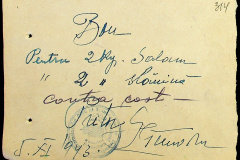 814
Bon
Pentru 2 Kg. Salam
" 2 " slănină
contra cost
5. XI